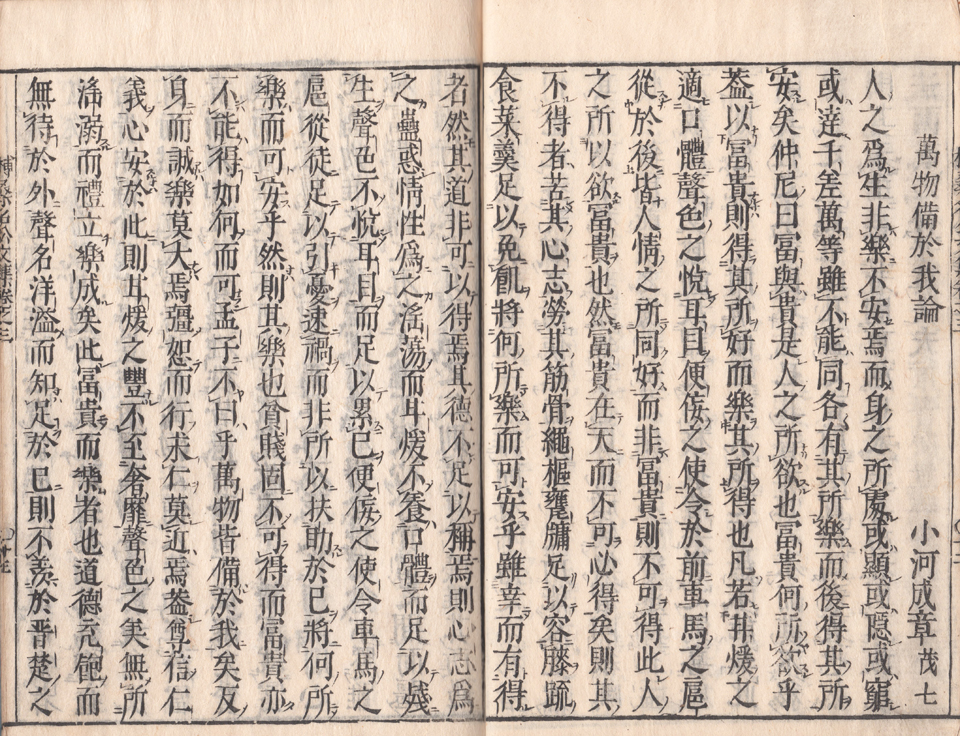 萬物備於我論
小河成章茂七
人之爲生非樂不安焉而身之所處或顯或隠或窮
或達千差萬等雖不能同各有其所樂而後得其所
安矣仲尼曰冨與貴是人之所欲也冨貴何所欲乎
葢以冨貴則得其所好而樂其所得也凡若其煖之
適口體聲色之悅耳目便侫之使令於前車馬之扈
從於後皆人情之所同好而非冨貴則不可得此人
之所以欲冨貴也然冨貴在天而不可必得矣則其
不得者苦其心志勞其筋骨繩樞甕牖足以容膝疏
食菜羹足以免飢將何所樂而可安乎雖幸而有得
者然其道非可以得焉其德不足以稱焉則心志爲
之蠱惑情性爲之滛蕩而耳煖不養口體而足以殘
生聲色不悅耳目而足以累已便侫之使令車馬之
扈從徒足以引憂速禍而非所以扶助於已將何所
樂而可安乎然則其樂也貧賤固不可得而冨貴亦
不能得如何而可孟子不曰乎萬物皆備於我矣反
身而誠樂莫大焉彊恕而行求仁莫近焉葢尊信仁
義心安於此則耳煖之豐不至奢靡聲色之美無所
滛溺而禮立樂成矣此冨貴而樂者也道德充飽而
無待於外聲名洋溢而知足於已則不羨於晋楚之